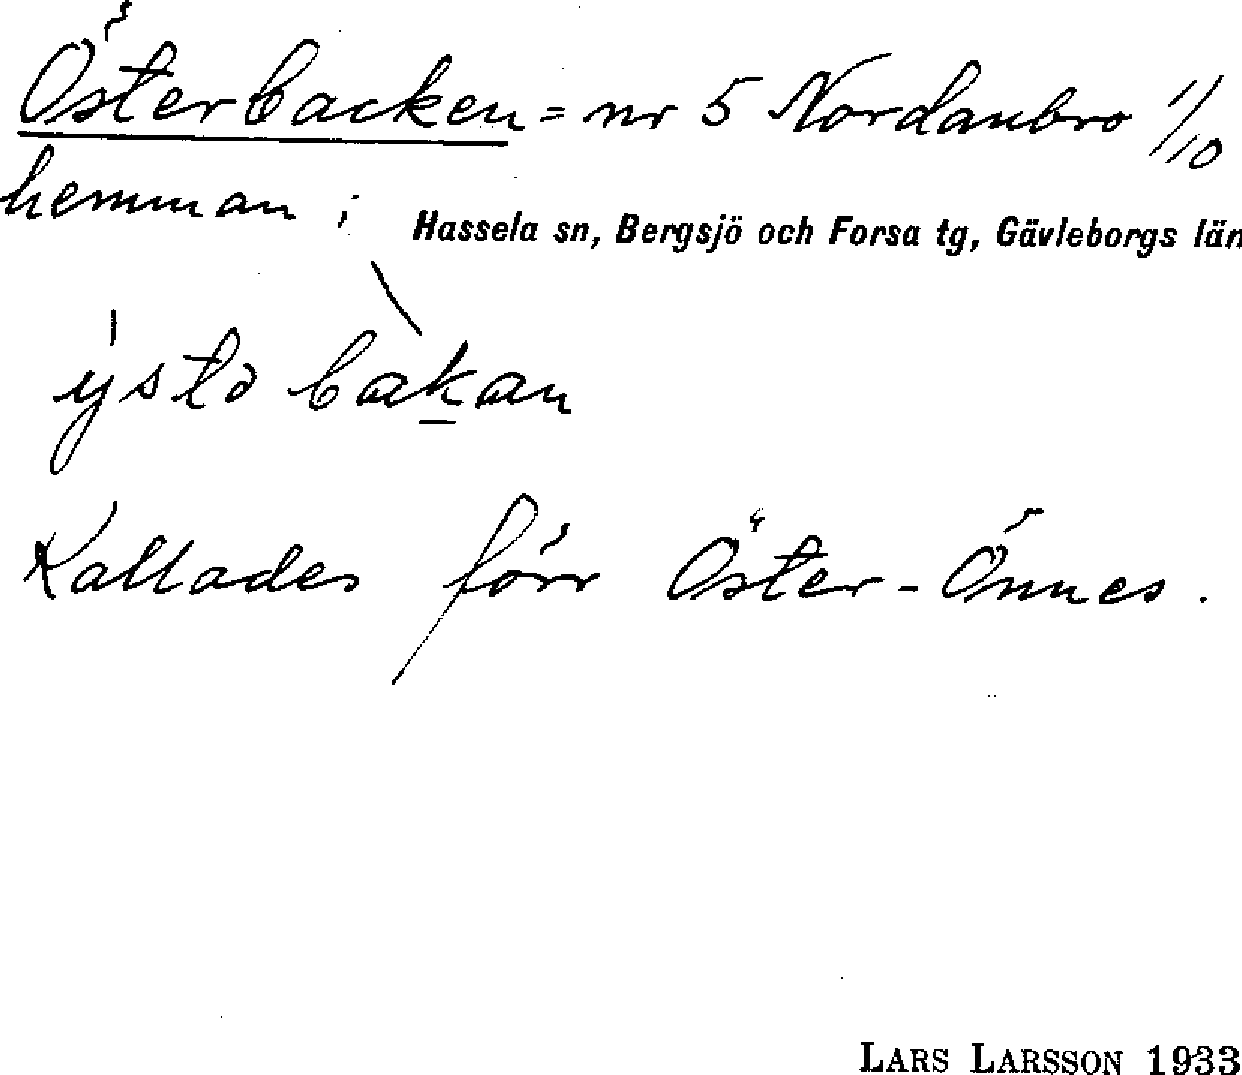 Österbacken = nr 5 Nordanbro 1/10
hemman i
Hassela sn, Bergsjö och Forsa tg, Gävleborgs län
Kallades förr Öster-Önnes.
LARS LARSSON 1933